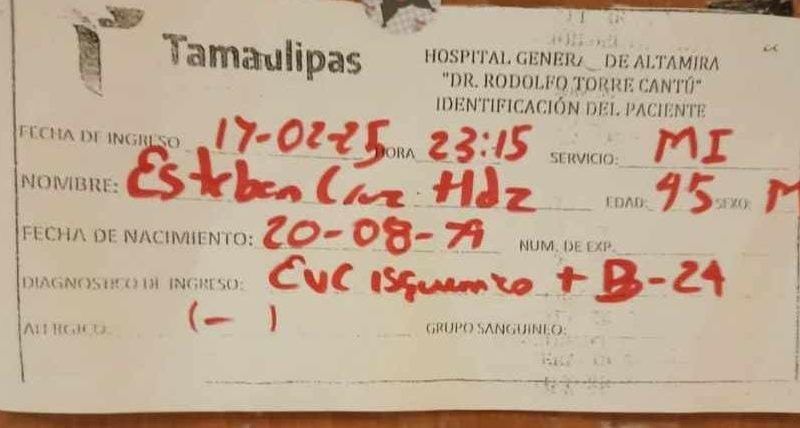 Tamaulipas
HOSPITAL GENERA_ DE ALTAMIRA
"DR. RODOLFO TORRE CANTÚ"
IDENTIFICACIÓN DEL PACIENTE
FECHA DE INGRESO 17-02-25 HORA 23:15 SERVICIO: MI
NOMBRE: Esteban Cruz Hdz EDAD: 45 SEXO: M
FECHA DE NACIMIENTO: 20-08-79 NUM. DE EXP.
DIAGNOSTICO DE INGRESO: EVC isquemico + B-24
ALERGICO: (-) GRUPO SANGUINEO: